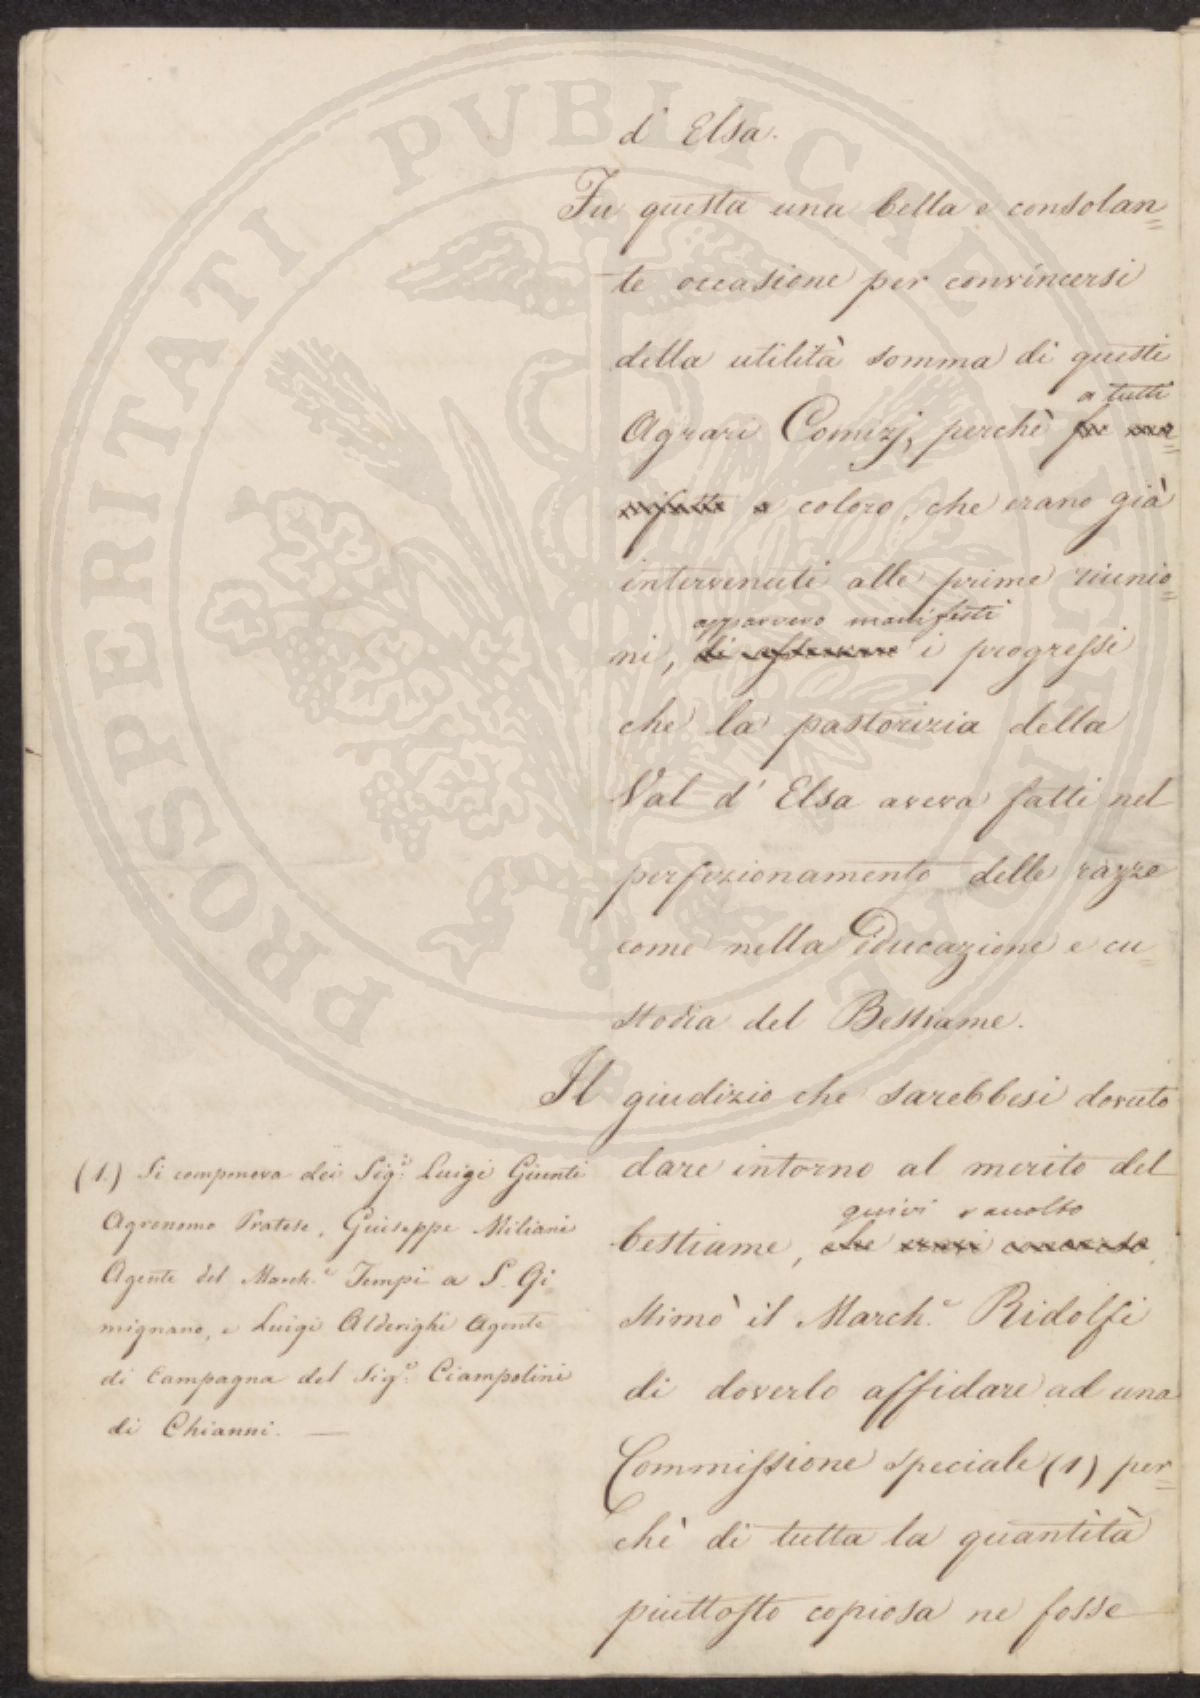 d' Elsa.
Fu questa una bella e consolan=
te occasione per convincersi
della utilità somma di questi
a tutti
Agrari Comizj, perchè fu ma=
nifesto a coloro, che erano già
intervenuti alle prime riunio=
apparvero manifesti
ni, di i progressi
che la pastorizia della
Val d' Elsa aveva fatti nel
perfezionamento delle razze
come nella Educazione e cu=
stodia del Bestiame.
Il giudizio che sarebbesi dovuto
dare intorno al merito del
quivi raccolto
bestiame, che erasi
stimò il March.e Ridolfi
di doverlo affidare ad una
Commissione speciale (1) per=
chè di tutta la quantità
piuttosto copiosa ne fosse
(1.) Si componeva dei Sig.i Luigi Giunti
Agronomo Pratese, Giuseppe Miliani
Agente del March.e Tempi a S. Gi=
mignano, e Luigi Alderighi Agente
di Campagna del Sig.e Ciampolini
di Chianni. —
PROSPERITATI PUBLICAE AUGENDAE